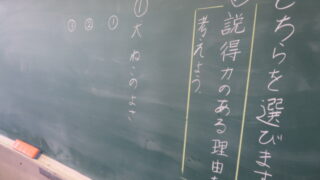 ちらを選びます
説得力のある理由
考えよう。
① 犬 ねこのよさ
①
②
③